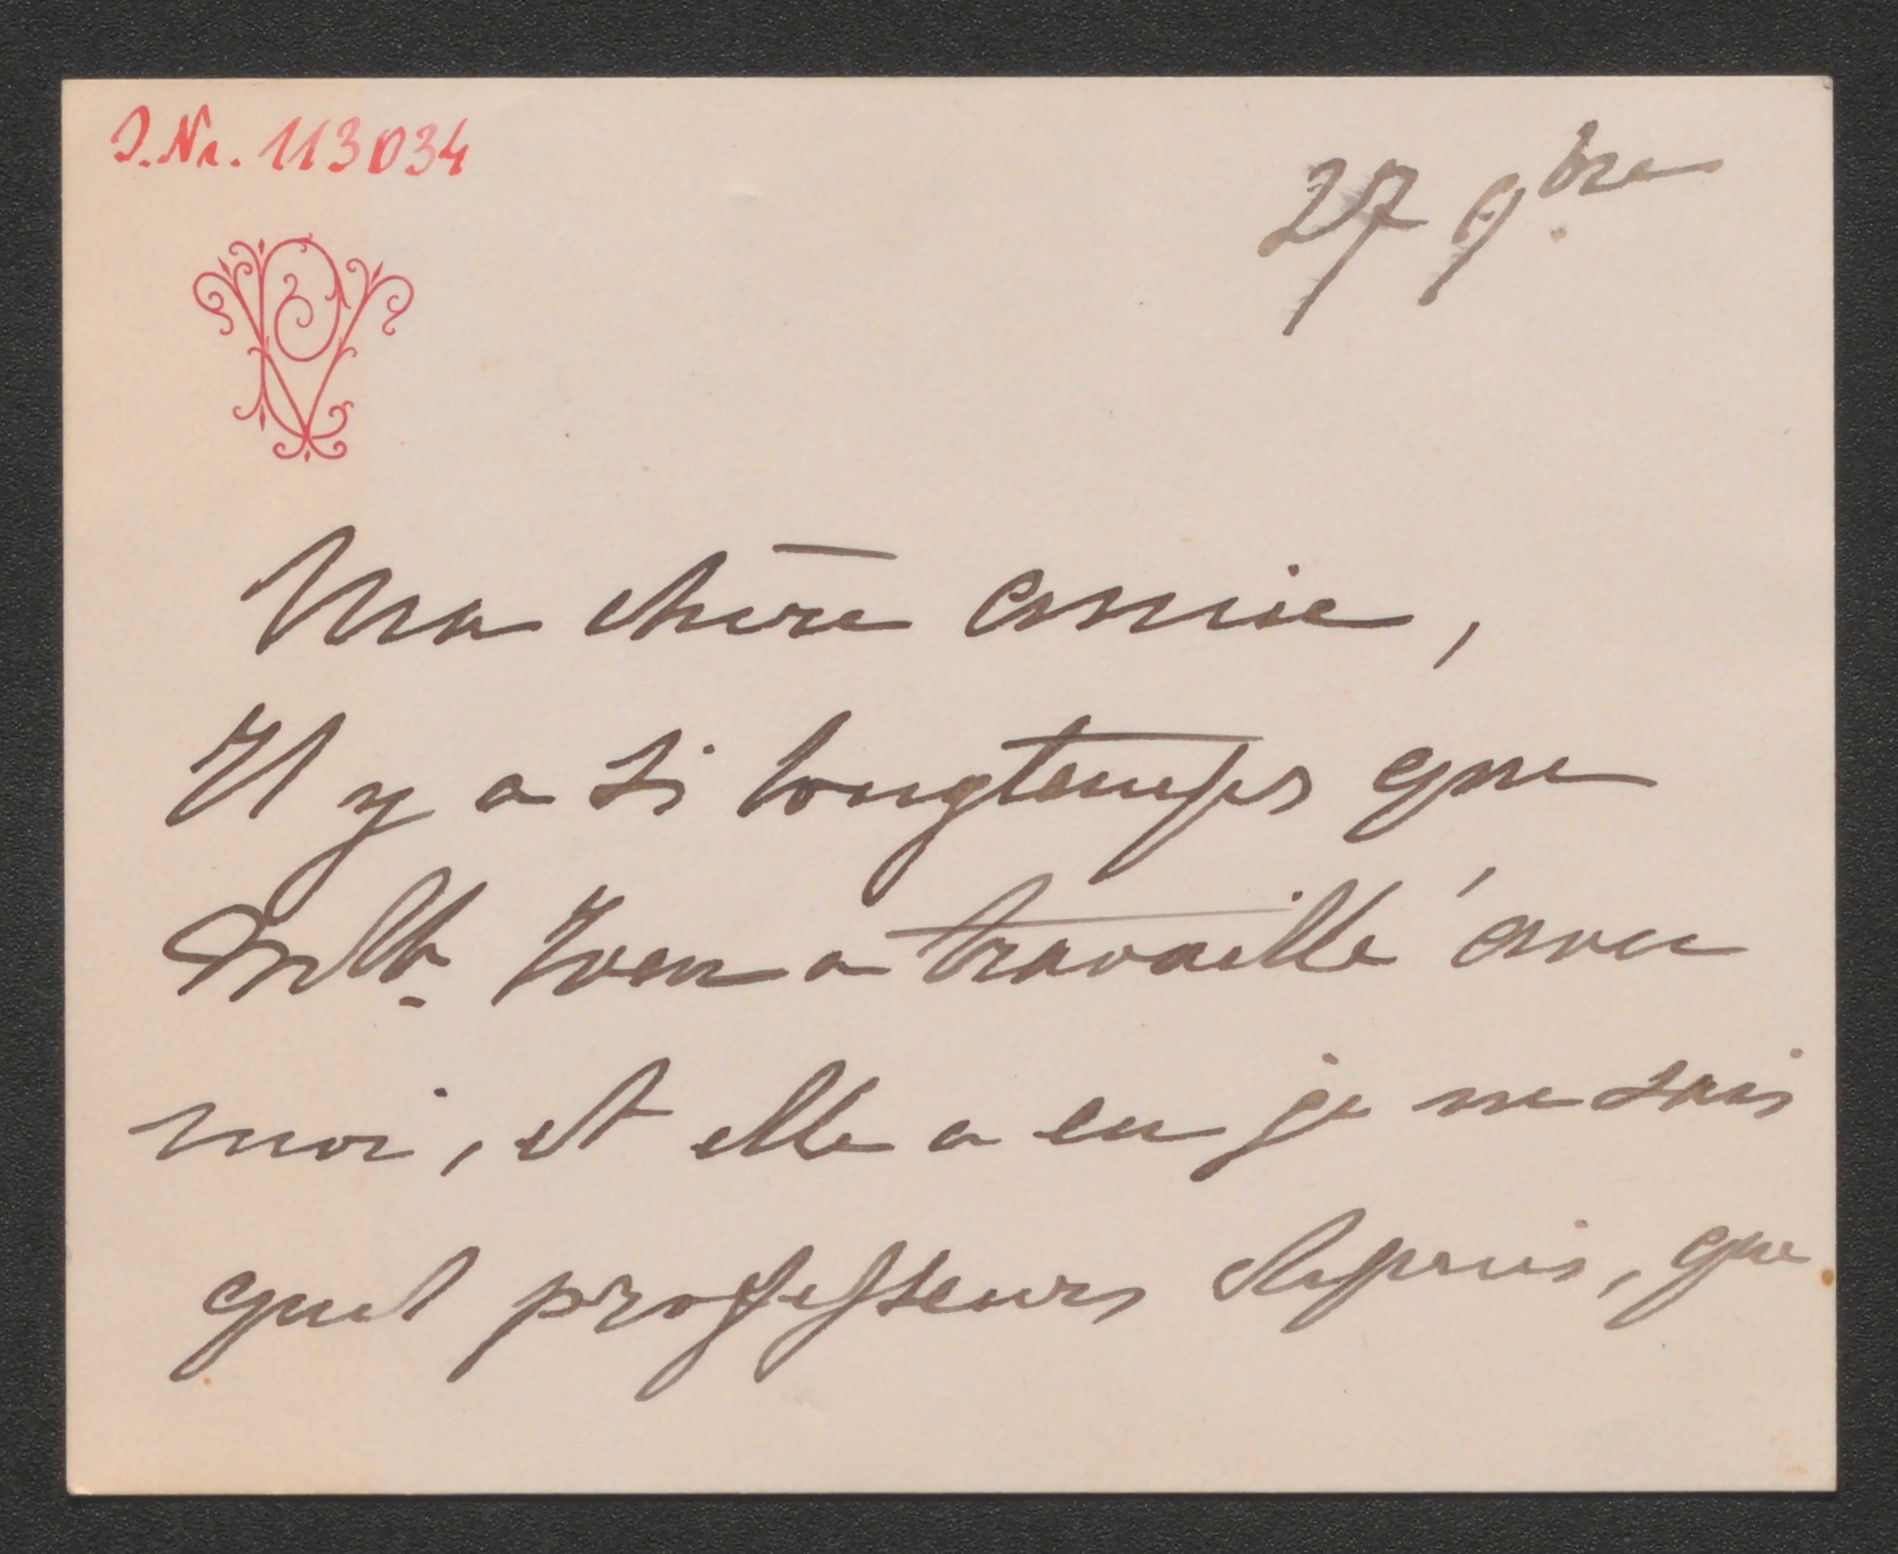 J.Nr. 113034
27 9bre
PV
Ma chère amie,
Il y a si longtemps que
Mlle. Iven a travaillé avec
moi, et elle a eu je ne sais
quel professeurs depuis, que